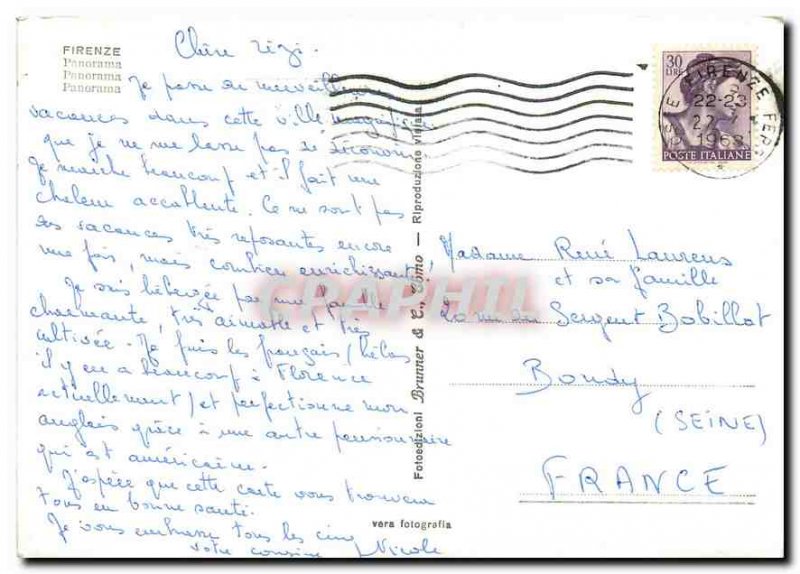 FIRENZE
Panorama
Panorama
Panorama
Chère Zézi.
Je passe de merveilleuses
vacances dans cette ville magnifique
que je ne me lasse pas de découvrir
Je marche beaucoup et il fait une
chaleur accablante. Ce ne sont pas
des vacances très reposantes encore
une fois, mais combien enrichissantes
Je suis hébergée par une famille
charmante, très aimable et très
cultivée. Je fuis les français (hélas
il y en a beaucoup à Florence
actuellement) et perfectionne mon
anglais grâce à une autre pensionnaire
qui est américaine.
J'espère que cette carte vous trouvera
tous en bonne santé.
Je vous embrasse tous les cinq
Votre cousine Nicole
vera fotografia
Fotoedizioni Brunner & C., Como — Riproduzione vietata
CPAPHIL
30
LIRE
POSTE ITALIANE
FIRENZE FERR
22-23
1968
Madame René Laurens
et sa famille
20 rue du Sergent Bobillot
Bondy
(SEINE)
FRANCE